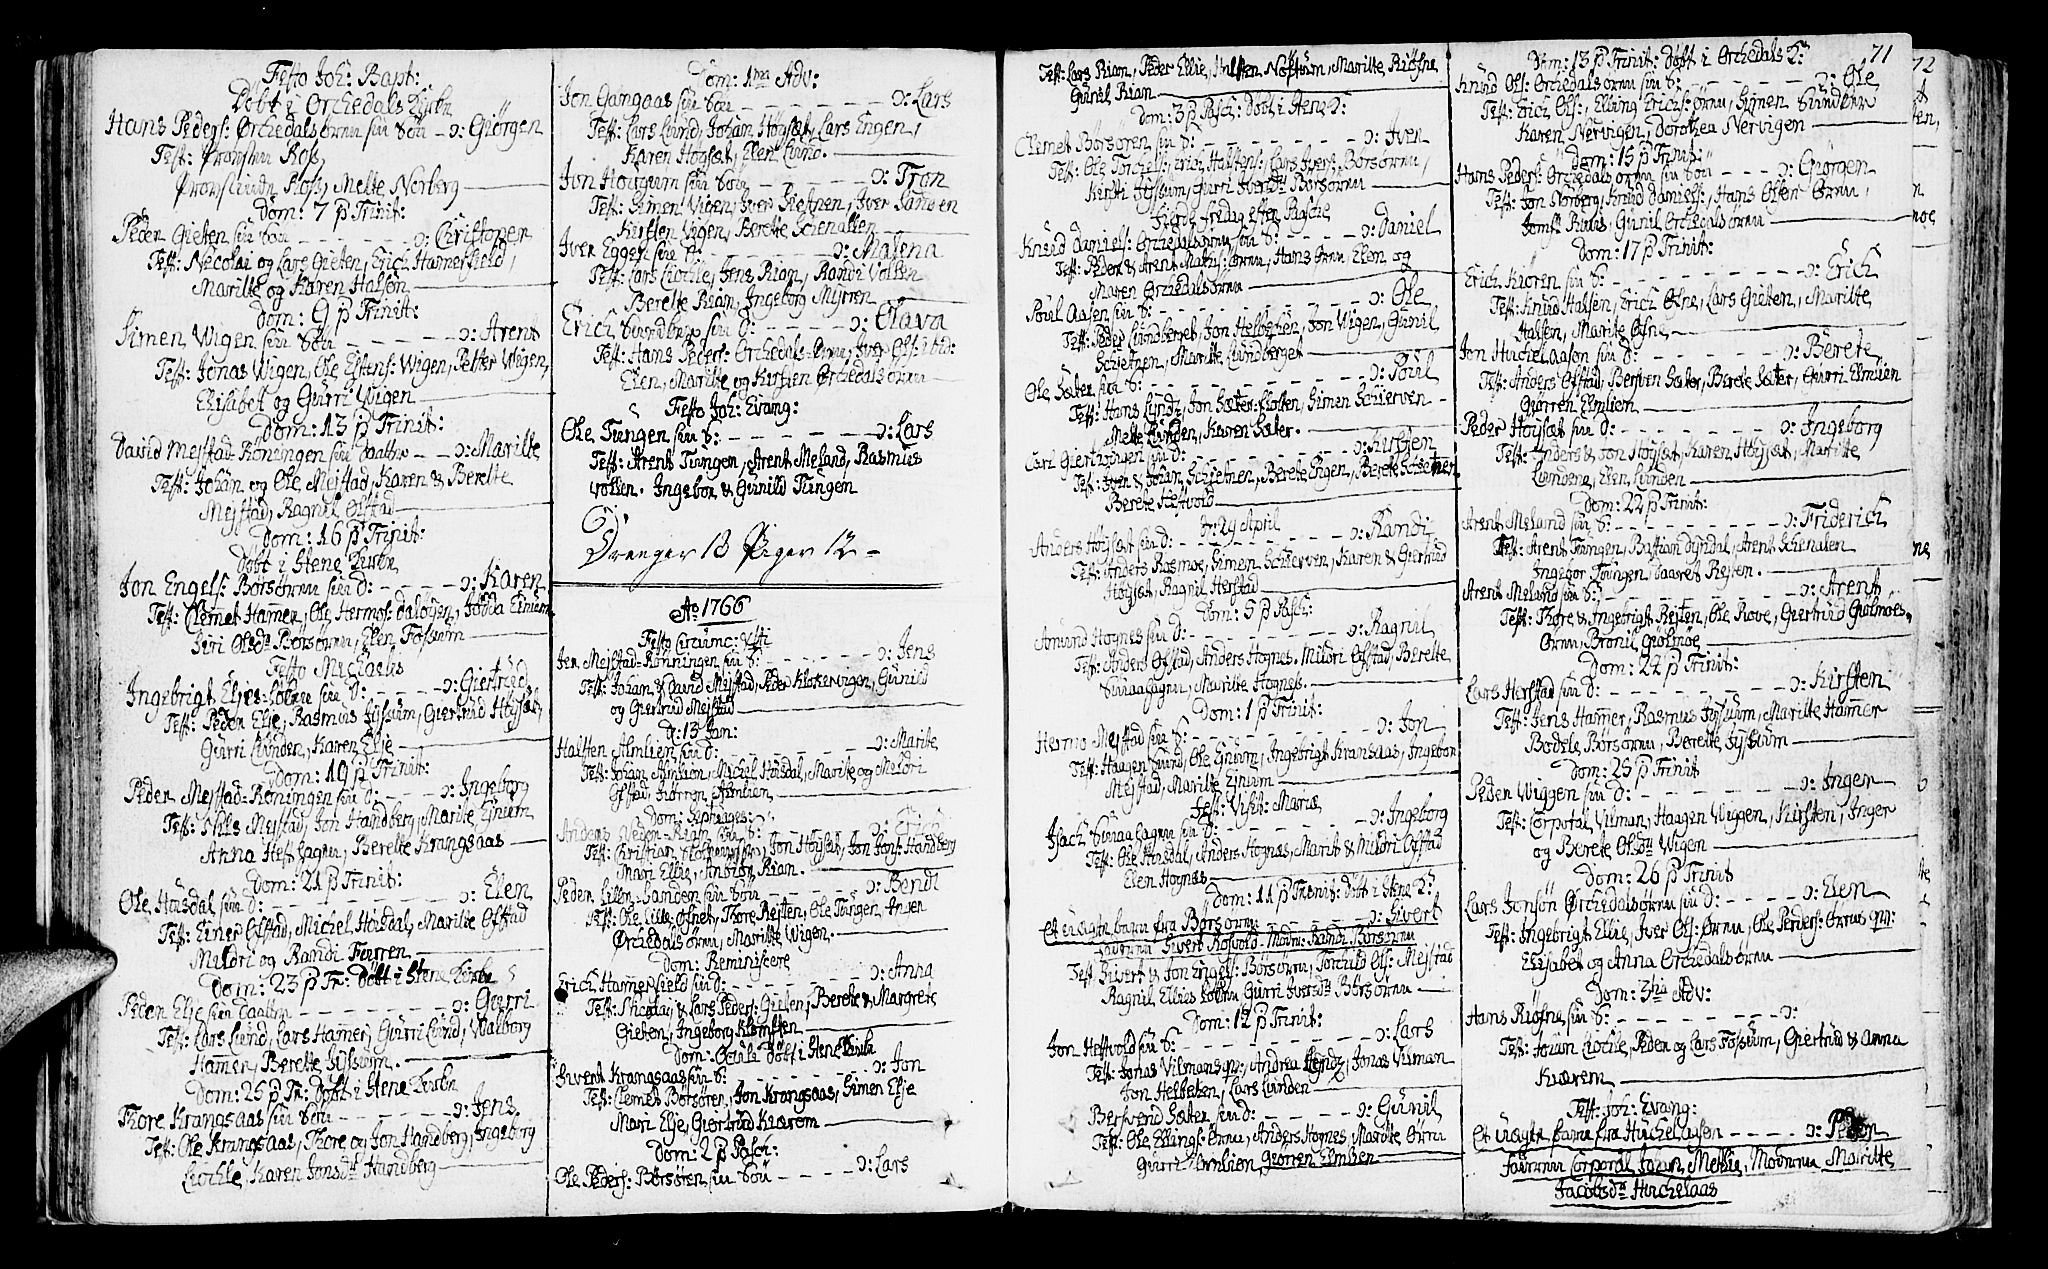 Festo Joh: Bapt:
Døbt i Orchedals Kirke
Hans Peders: Orchedalsørnu sin Søn - ɔ: Giörgen
Test: Provsten Ross,
Ross, Mette Norberg
Dom: 7 p Trinit:
Peder Gieten sin Søn - - - - - - ɔ: Christopher
Test: Necolai og Lars Gieten, Erich Hamerfield,
Maritte og Karen Halsen
Dom: 9 p Trinit:
Simen Wigen sin Søn - - - - - - ɔ: Arent
Test: Jonas Wigen, Ole Estens: Wigen, Petter Wigen,
Elisabet og Gurri Wigen
Dom: 13 p Trinit:
David Mejstad-Röningen sin Daatter - - ɔ: Maritte
Test: Johan og Ole Mejstad, Karen & Berette
Mejstad, Ragnil Ofstad
Dom: 16 p Trinit:
Døbt i Stene Kirke
Jon Engels: Börsörnu sin D: - - - - ɔ: Karen
Test: Clemet Hamer, Ole Hermos: Dalöyen,
Siri Olsdr Börsörnu, Elen Fossum
Festo Michaelis
Ingebrigt Eljes- sin D: - - - - ɔ: Giertrud
Test: Peder Elje, Rasmus Jyssum, Giertrud Höysæt,
Gurri Lunden, Karen Elje
Dom: 19 p Trinit:
Peder Mejstad-Röningen sin D: - - - - ɔ: Ingeborg
Test: Nils Mejstad, Jon Handberg, Marite
Anna Berette Krangsaas
Dom: 21 p Trinit:
Ole Husdal sin D: - - - - - - ɔ: Elen
Test: Einer Ofstad, Michel Husdal, Maritte Ofstad
Mildri og Randi
Dom: 23 p Tr: Døbt i Stene Kirke
Peder Elje sin Daatter - - - - - - ɔ: Gurri
Test: Lars Lund, Lars Hamer, Gurri Lund, Walborg
Hamer, Berette Jyssum.
Dom: 25 p Tr: Døbt i Stene Kirke
Thore Krangsaas sin Søn - - - - - ɔ: Jens
Test: Ole Krangsaas, Thore og Jon Handberg, Ingeborg
Lochle, Karen Jonsdr Handberg
Dom: 1ma Adv:
Jon Gangaas sin Søn - - - - - - - ɔ: Lars
Test: Lars Lund, Johan Höysæt, Lars Engen,
Karen Höysæt, Elen Lund.
Jon Hougum sin Søn - - - - - - ɔ: Tron
Test: Simen Wigen, Iver Sietnen, Iver Sanden
Kirsten Wigen, Berette Schenalten
Iver Eggen sin D: - - - - - - - ɔ: Malena
Test: Lars Lochle, Jens Rian, Randi Volden
Berette Rian, Ingeborg Myrren
Erich sin D: - - - - - ɔ: Olava
Test: Hans Peders: Orchedals-Ørnu, Iver Ols: ibid:
Elen, Maritte og Kirsten Orchedalsørnu
Festo Joh: Evang:
Ole Tungen sin S: - - - - - - - ɔ: Lars
Test: Arent Tungen, Arent Meland, Rasmus
Volden. Ingebor & Gunild Tungen
Drenger 13 Piger 12 -
Ao 1766
Festo Circumc: Xsti
Jens Mejstad-Rönningen sin S: - - - - - - - ɔ: Jens
Test: Johan & David Mejstad, Peder Klokervigen, Gunild
og Giertrud Mejstad
d: 13 Jan:
Halsten Almlien sin D: - - - - - - - ɔ: Marite
Test: Johan Almlien, Michel Husdal, Maritte og Mildri
Ofstad, Siørren Almlien
Dom: Septuages:
Anders Rian sin S: - - - - - - ɔ: Erich
Test: Christian Jon Höysæt, Jon Jons: Handberg
Mari Ellie, Rian.
Peder Lillen-Sanden sin Søn - - - - - - ɔ: Bendt
Test: Ole Lille Ofnet, Thore Rejten, Ole Tungen Inger
Orchedalsørnu, Maritte Wigen.
Dom: Reminiscere
Erich Hamerfield sin D: - - - - - - - ɔ: Anna
Test: Nicolai & Lars Peders: Gieten, Berete & Margrete
Gieten, Ingeborg Klomsten
Dom: Oculi Døbt i Stene Kirke
Sivert Krangsaas sin S: - - - - - - - ɔ: Jon
Test: Clemet Börsören, Jon Krangsaas, Simen Elje
Mari Elje, Giertrud Kværem
Dom: 2 p Pasch:
Ole Peders: Börsören sin Søn - - - - ɔ: Lars
Test: Lars Rian, Peder Ellie, Halsten Nostum, Maritte Riösne
Gunil Rian
Dom: 3 p Pasch: Døbt i Stene K:
Clemet Börsören sin S: - - - - - - - - ɔ: Iven
Test: Ole Torchels: Erich Halstens: Lars Ivers: Börsörnu,
Kirsti Jyssum, Gurri Iversdr Börsörnu
Fierde fredag efter Pasche
Knud Daniels: Orchedalsørnu sin S: - - - - - ɔ: Daniel
Test: Peder & Arent Mattis: Ørnu, Hans Ørnu Elen og
Maren Orchedalsørnu
Povil Aasen sin S: - - - - - - - - - ɔ: Ole
Test: Peder Lundberget, Jon Helbetzen, Jon Wigen, Gunil
Schietnen, Maritte Lundberget
Ole Sæter sin S: - - - - - - - - - ɔ: Povil
Test: Hans Lyndz, Jon Sæter-Floten, Simen Schierven
Mette Lunden, Karen Sæter.
Carl Giertvolden sin D: - - - - - - - ɔ: Kirsten
Test: Iver & Johan Schietnen, Berete Eigen, Berete Schietnen
Berete Heftvold
d: 29 April
Anders Höysæt sin D: - - - - - - - ɔ: Randi
Test: Anders Rosmoe, Simen Schierven, Karen & Giertrud
Höysæt, Ragnil Herstad
Dom: 5 p Pasch:
Amund Hognes sin D: - - - - - - - ɔ: Ragnil
Test: Anders Ofstad, Anders Hognes. Mildri Ofstad, Berette
Maritte Hognes.
Dom: 1 p Trinit:
Hermo Mejstad sin S: - - - - - - - - ɔ: Jon
Test: Haagen Lund, Ole Ingebrigt Kransaas, Ingebor
Mejstad, Maritte
Fest: Visit: Mariæ
Isach sin D: - - - - - - - ɔ: Ingeborg
Test: Ole Husdal, Anders Hognes, Marit & Mildri Ofstad
Elen Hognes
Dom: 11 p Trinit: Døbt i Stene K:
Et uægte barn fra Börsörnu - - - - - - ɔ: Sivert
Faderen Sivert Rosvold - Modr: Randi Börsörnu
Test: Sivert & Jon Engels: Börsörnu, Torchild Ols: Mejstad
Ragnil Ellies Gurri Iversdr Börsörnu
Dom: 12 p Trinit:
Jon Heftvold sin S: - - - - - - - - ɔ: Lars
Test: Jonas Vilmans , Andrea Lyndz, Jonas Vilman
Jon Helbetzen, Lars Lunden
Berswend Sæter sin D: - - - - - ɔ: Gunil
Test: Ole Ellings: Ørnu, Anders Hognes, Maritte Ørnu
Gurri Almlien, Giørren Elmlien
71
Dom: 13 p Trinit: Døbt i Orchedals K:
Knud Ols: Orchedalsørnu sin S: - - - - - - ɔ: Ole
Test: Erich Ols: Elling Erichs: Ørnu, Simen
Karen Nervigen, Dorothea Nervigen
Dom: 15 p Trinit:
Hans Peders: Orchedalsørnu sin Søn - - - - - ɔ: Giörgen
Test: Jon Norberg, Knud Daniels:, Hans Olsen Ørnu,
Jomf: Gunil Orchedalsørnu
Dom: 17 p Trinit:
Erich Kiören sin S: - - - - - - - - - ɔ: Erich
Test: Knud Halsen, Erich Lars Gieten, Maritte
Halsen, Marite
Jon Huchelaasen sin D: - - - - - - - ɔ: Berete
Test: Anders Ofstad, Bersven Sæter, Berete Sæter, Gurri Elmlien
Giørren Elmlien
Peder Höysæt sin D: - - - - - - - ɔ: Ingeborg
Test: Anders & Jon Höysæt, Karen Höysæt, Maritte
Lundene, Elen Lunden
Dom: 22 p Trinit:
Arent Meland sin S: - - - - - - - - ɔ: Friderich
Test: Arent Tungen, Bastian Lyndal, Arent Schenalen
Ingebor Tungen, Rejten.
Arent Meland sin S: - - - - - - - - ɔ: Arent
Test: Thore & Ingebrigt Rejten, Ole Rove, Giertrud Giölmoe-
Ørnu, Broni Giölmoe
Dom: 24 p Trinit:
Lars Herstad sin D: - - - - - - - - ɔ: Kirsten
Test: Jens Hamer, Rasmus Jyssum, Maritte Hamer
Bodele Börsörnu, Berette Jyssum
Dom: 25 p Trinit
Peder Wiggen sin D: - - - - - - - ɔ: Inger
Test: Corporal Vilman, Haagen Wiggen, Kirsten, Inger
og Berete Olsdr Wigen
Dom: 26 p Trinit
Lars Jonsøn Orchedalsørnu sin D: - - - - ɔ: Elen
Test: Ingebrigt Ellie, Iver Ols: Ørnu, Ole Peders: Ørnu
Elisabet og Anna Orchedalsørnu
Dom: 3tia Adv:
Hans Riösne sin S: - - - - - - - - ɔ:
Test: Johan Lochle, Peder og Lars Fossum, Giertrud & Anna
Kværem
Fest: Joh: Evang:
Et uægte barn fra Huchelaasen - - - - - ɔ: Peder
Faderen Corporal Johan Mettle, Moderen Maritte
Jacobsdr Huchelaas